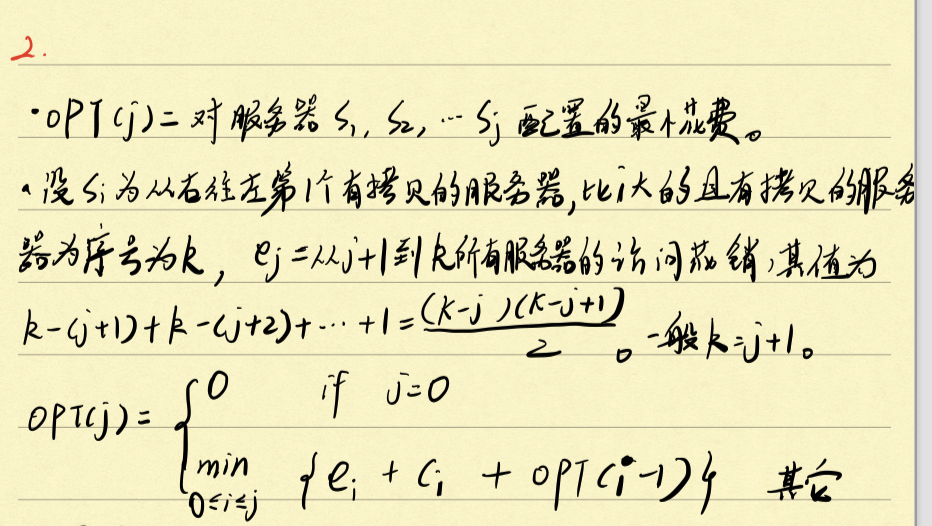 2.
·OPT(j)= 对服务器 S₁, S₂, … Sj 配置的最小花费。
·设Si为从右往左第1个有拷贝的服务器,比i大的且有拷贝的服务
器为序号为k, ej=从j+1到k所有服务器的访问花销,其值为
k-(j+1)+k-(j+2)+…+1=(k-j)(k-j+1)/2。一般k=j+1。
OPT(j)= { 0 if j=0
min 0≤i≤j {ei + ci + OPT(i-1)} 其它